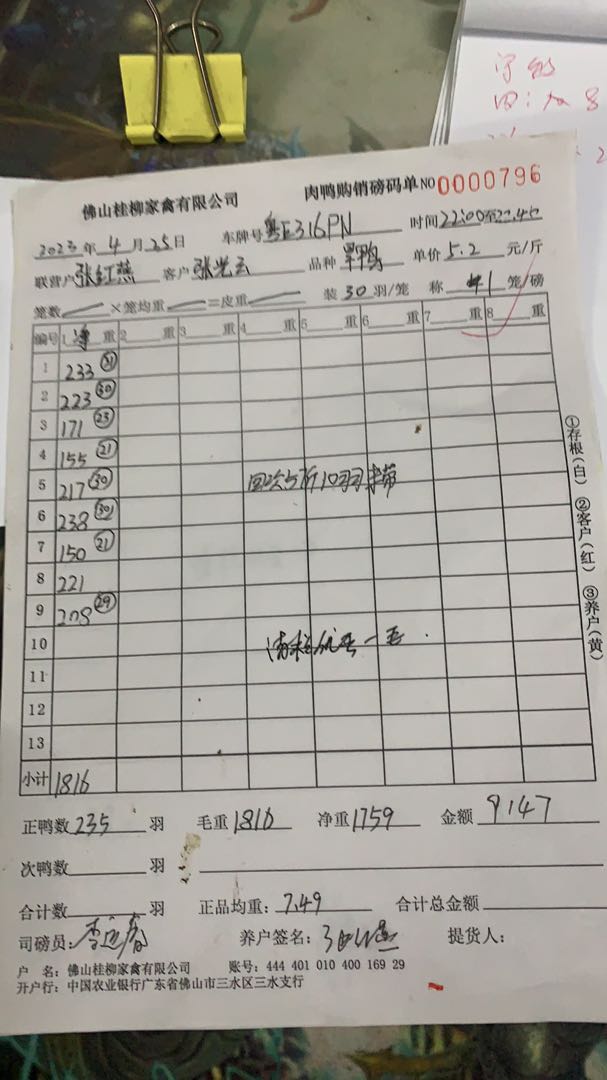 佛山桂柳家禽有限公司 肉鸭购销磅码单 NO 0000796
2023年4月25日 车牌号 粤E316PN 时间 22:00至22:45
联营户 张红燕 客户 张光云 品种 单价 5.2 元/斤
笼数 ×笼均重 =皮重 装 30 羽/笼 称 1 笼/磅
编号 1 净 重 2 重 3 重 4 重 5 重 6 重 7 重 8 重
1 233 ㉛
2 223 ㉚
3 171 ㉓
4 155 ㉑
5 217 ㉚
6 238 ㉚
7 150 ㉑
8 221
9 208 ㉙
10
11
12
13
小计 1816
①存根(白) ②客户(红) ③养户(黄)
正鸭数 235 羽 毛重 1816 净重 1759 金额 9147
次鸭数 羽
合计数 羽 正品均重: 7.49 合计总金额
司磅员: 养户签名: 提货人:
户 名: 佛山桂柳家禽有限公司 账号: 444 401 010 400 169 29
开户行: 中国农业银行广东省佛山市三水区三水支行